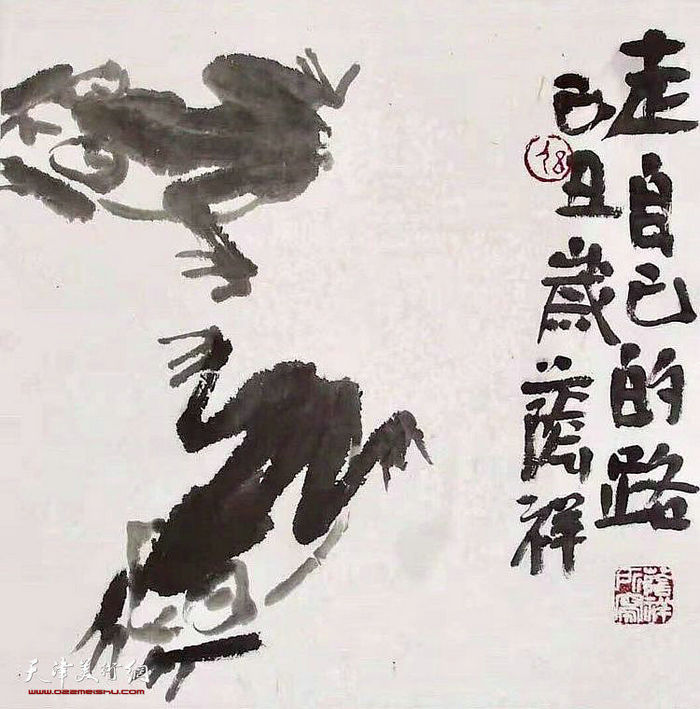 走自己的路
己丑歲蔭祥
18
天津美術網
www.022meishu.com